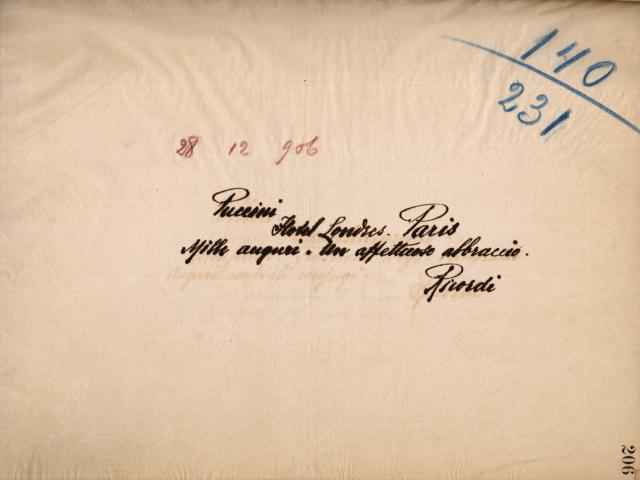 140
231
28 12 906
Puccini
Hotel Londres. Paris
Mille auguri. Un affettuoso abbraccio.
Ricordi
206